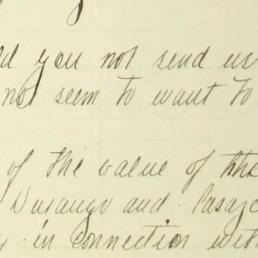 you not send
not seem to want to
of the value of the
Durango and
in connection with